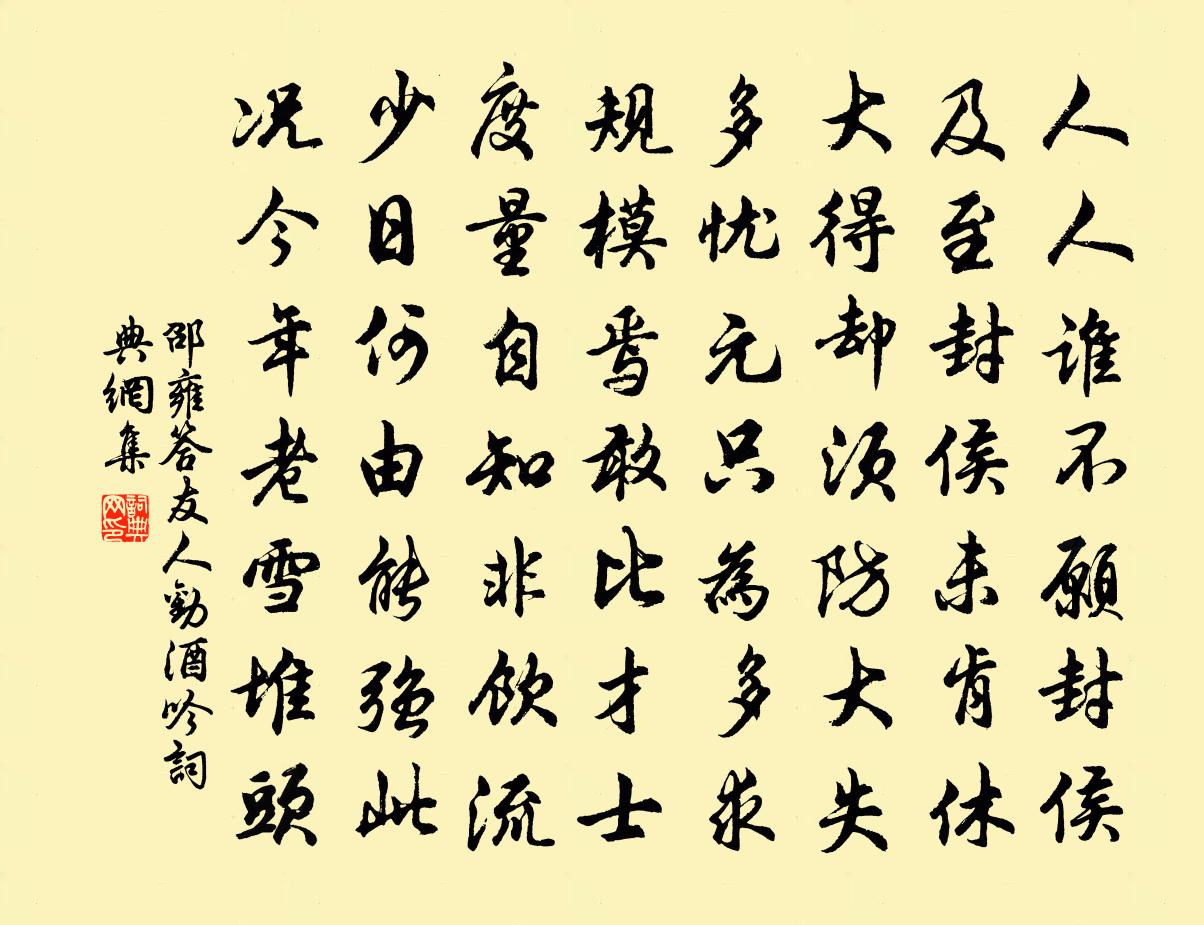 人人谁不願封侯
及至封侯未肯休
大得却须防大失
多忧元只為多求
规模焉敢比才士
度量自知非飲流
少日何由能强此
况今年老雪堆頭
邵雍答友人勸酒吟詞
典網集
詞典
网印